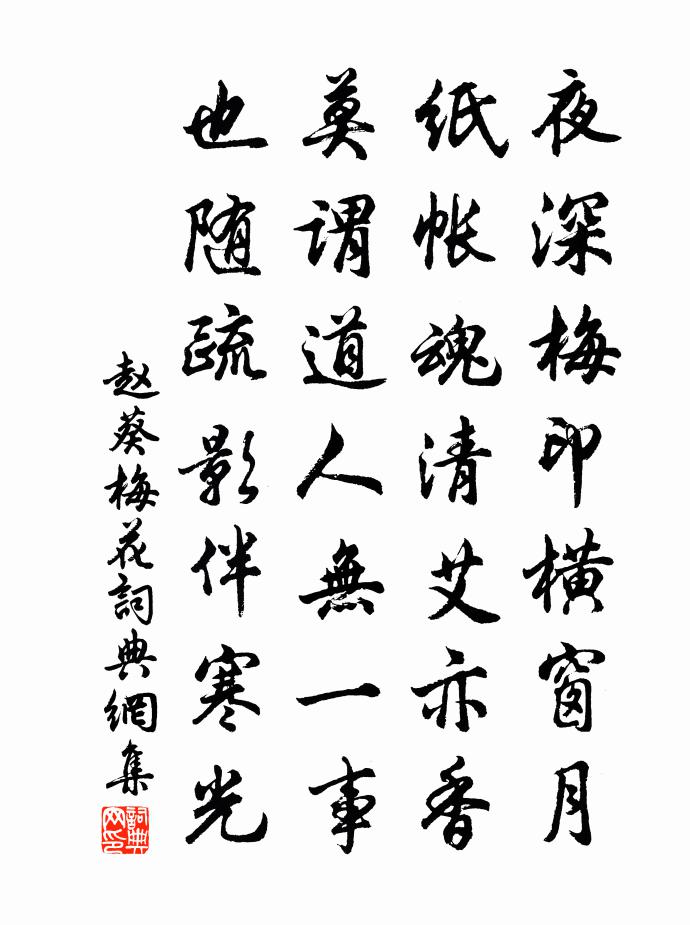 夜深梅印橫窗月
紙帐魂清艾亦香
莫謂道人無一事
也随疏影伴寒光
赵葵梅花詞典網集
詞典网印